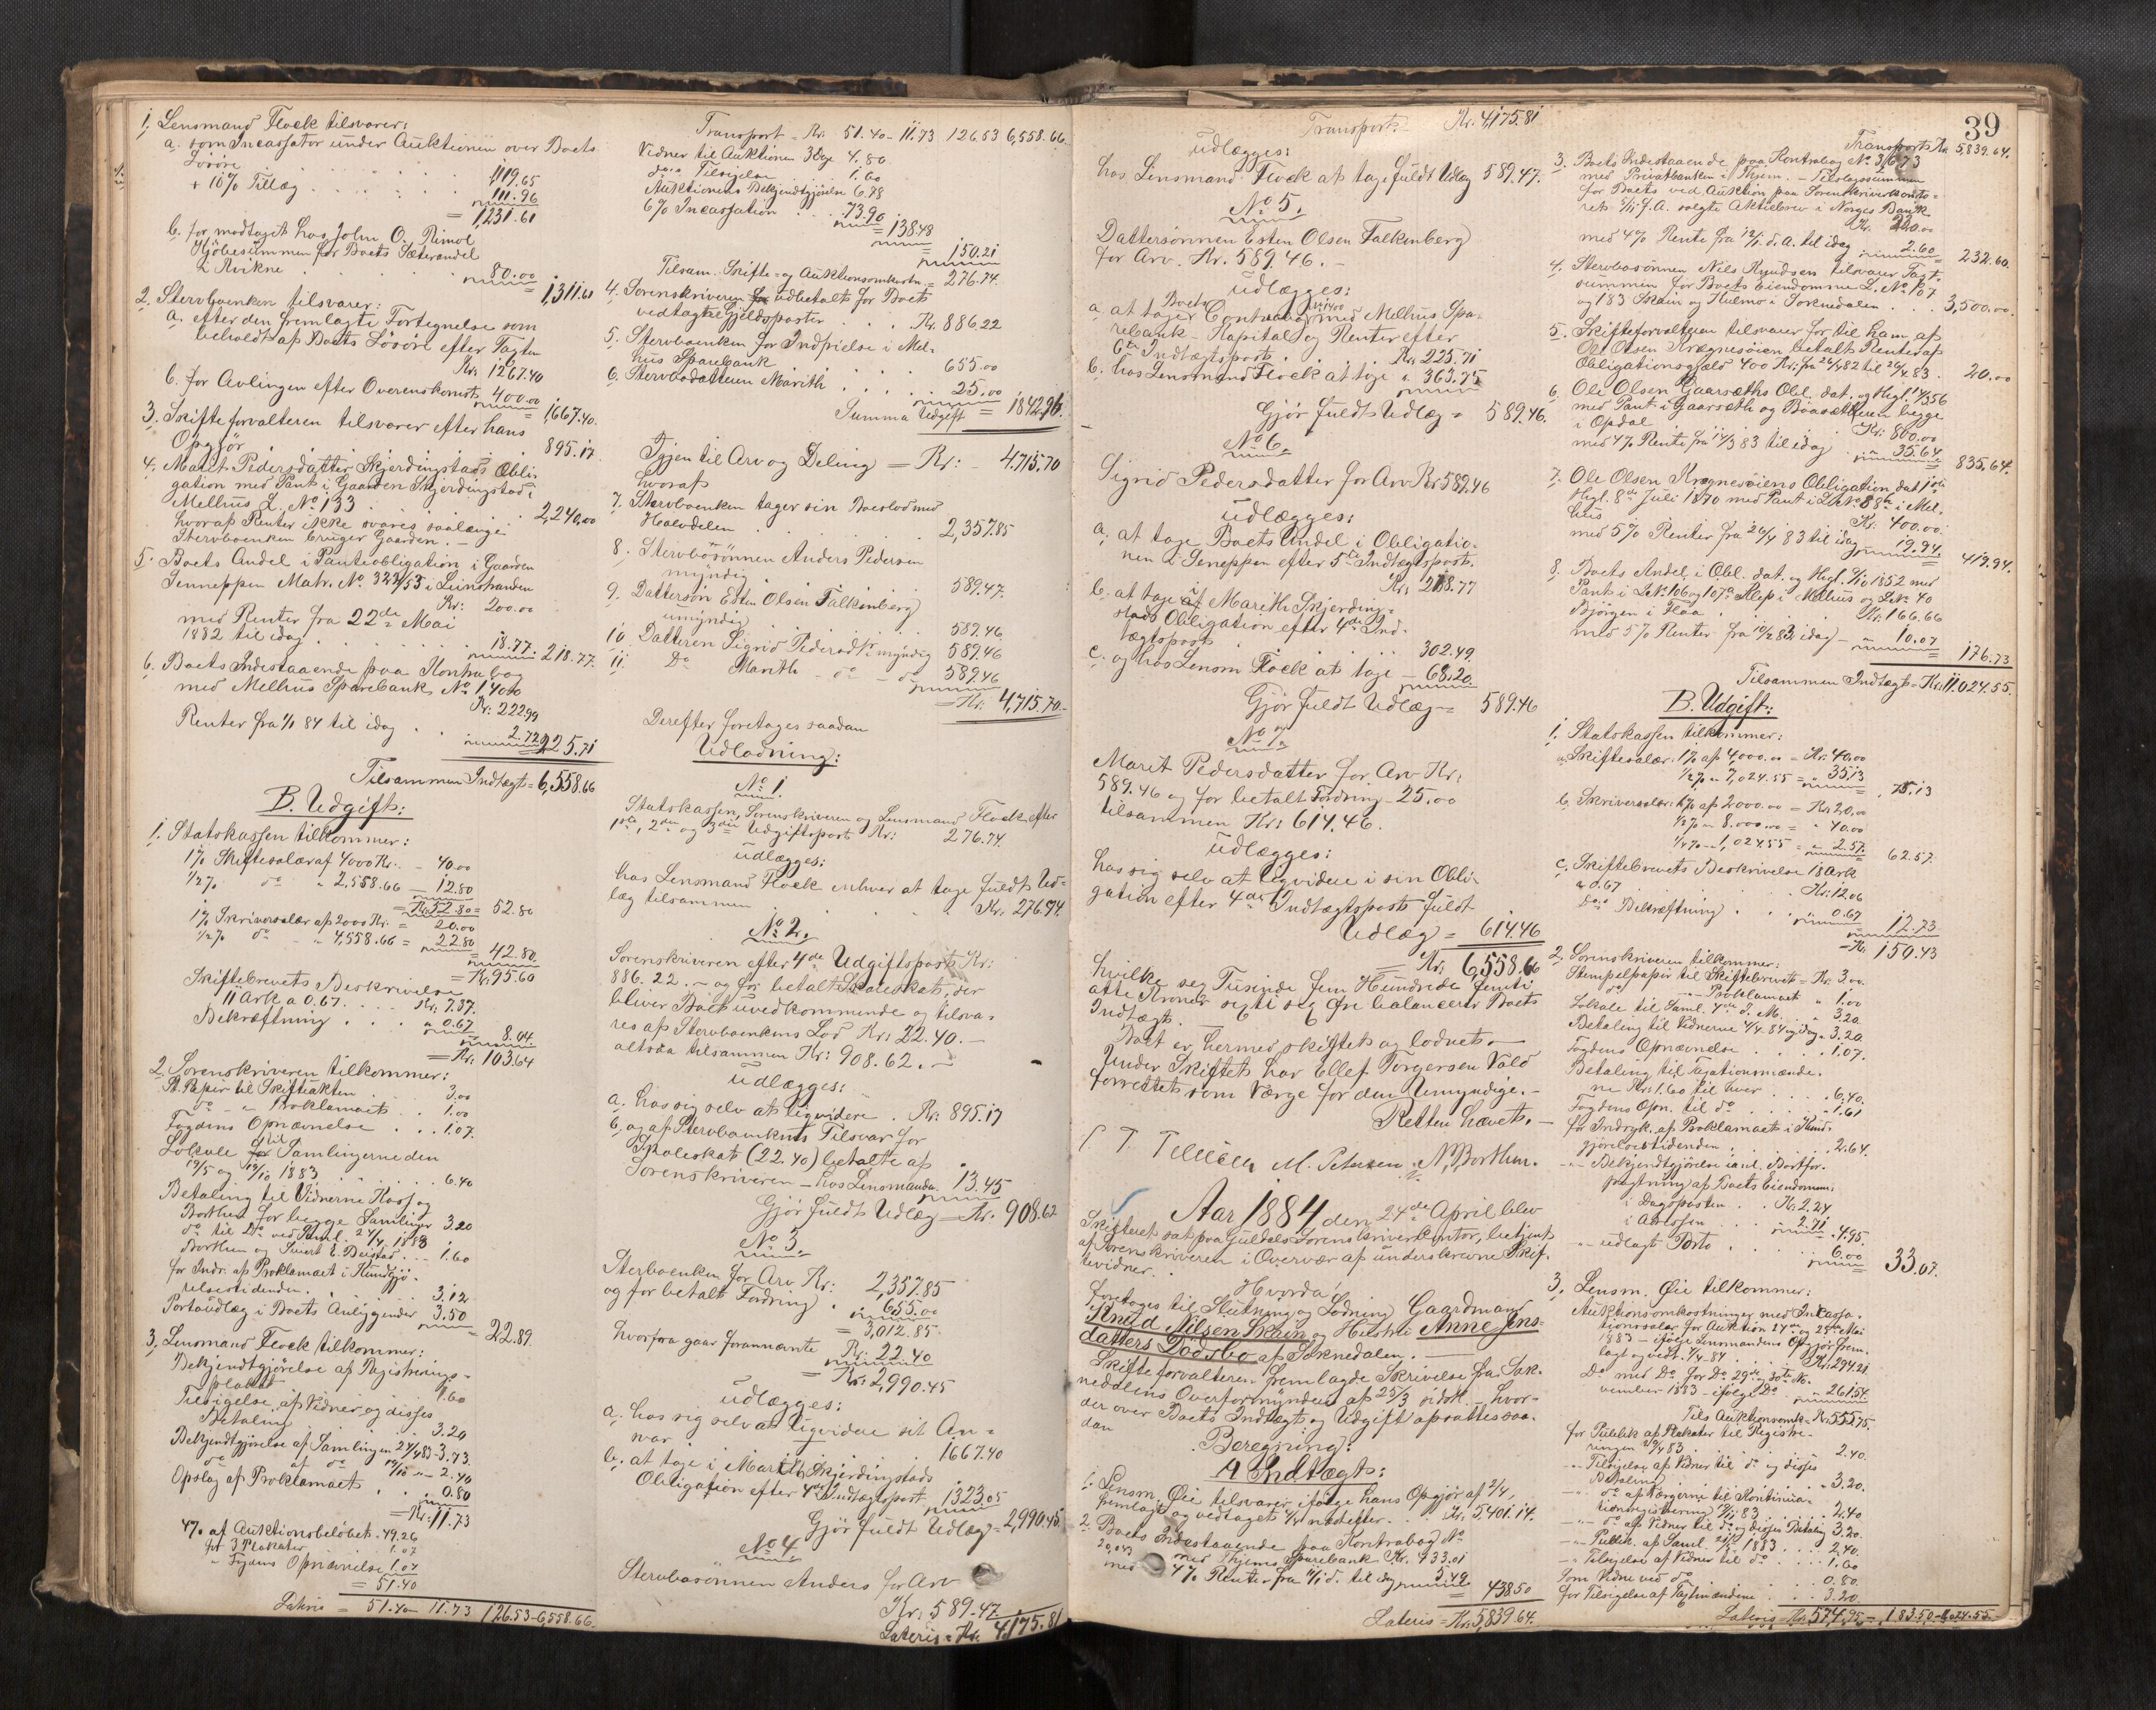 1. Lensmand Flock tilsvarer:
a. som Incassator under Auktionen over Boets
Løsøre 1,119.65
+ 10% Tillæg 111.96
= 1,231.61
b. for modtaget hos John O. Rimol
Kjöbesummen for Boets Sæterandel
i Kvikne 80.00
= 1,311.61
2. Stervboenken tilsvarer:
a. efter den fremlagte Fortegnelse som
beholdt af Boets Løsöre efter Taxten
Kr: 1267.40
b. for Avlingen efter Overenskomst 400.00
1,667.40.
3. Skifteforvalteren tilsvarer efter hans
Opgjør 895.17
4. Marit Pedersdatter Skjerdingstads Obli-
gation med Pant i Gaarden Skjerdingstad i
Melhus L. No 133 2,240.00
hvoraf Renter ikke svares saalænge
Stervboenken bruger Gaarden. –
5. Boets Andel i Pantobligation i Gaarden
Jenneppen Matr. No 322/53 i Leinstranden
Kr: 200.00
med Renter fra 22de Mai
1882 til idag 18.77. 218.77.
6. Boets Indestaaende paa Kontrabog
med Melhus Sparebank No 1400
Kr: 222.99
Renter fra 1/1 84 til idag 2.72
225.71
Tilsammen Indtægt = 6,558.66
B. Udgift:
1. Statskassen tilkommer:
1% Skiftesalær af 4000 Kr. – 40.00
1/2% do " 2,558.66 – 12.80
= Kr. 52.80 = 52.80
1% Skriversalær af 2000 Kr. = 20.00
1/2% do " 4,558.66 = 22.80
= 42.80.
= Kr. 95.60
Skiftebrevets Beskrivelse
11 Ark a 0.67. Kr. 7.37.
Bekræftning " 0.67
8.04.
= Kr. 103.64
2. Sorenskriveren tilkommer:
St. Papir til Skifteakten 3.00
do – " Proklamaet 1.00
Fogdens Opnævnelse 1.07.
Lokale til Samlingerne den
19/5 og 19/10 1883 6.40
Betaling til Vidnerne Kass og
Borthen for begge Samlinger 3.20
do til Do ved Saml. 24/4 1883
Borthen og Sivert E. Beistad 1.60
for Indr. af Proklamaet i Kundgjø-
relsestidenden 3.12
Portoudlæg i Boets Anliggender 3.50
= 22.89
3. Lensmand Flock tilkommer:
Bekjendtgjörelse af Registrerings-
plakat 1.60
Tilsigelse af Vidner og disses
Betaling 3.20
Bekjendtgjørelse af Samlingen 24/4 83 – 3.73.
do af do 19/10 " – 2.40
Opslag af Proklamaet 0.80
= Kr. 11.73
4% af Auktionsbeløbet 49.26
for 3 Plakater 1.07
" Fogdens Opnævnelse 1.07
= 51.40
Lateris = 51.40 – 11.73 126.53 – 6,558.66.
Transport = Kr: 51.40 – 11.73 126.53 6,558.66.
Vidner til Auktionen 3 Dge 4.80.
deres Tilsigelse 1.60
Auktionens Bekjendtgjørelse 6.78
6% Incassation 73.90
= 138.48
150.21
Tilsam. Skifte- og Auktionsomkostn. = 276.74.
4. Sorenskriveren udbetalt for Boets
vedtagne Gjeldsposter Kr. 886.22
5. Stervboenken for Indfrielse i Mel-
hus Sparebank 655.00
6. Stervbodatteren Marith 25.00
Summa Udgift = 1842.96.
Igjen til Arv og Deling = Kr: – 4,715.70
hvoraf
7. Stervboenken tager sin Boeslod med
Halvdelen 2,357.85
8. Stervbosønnen Anders Pedersen
myndig 589.47.
9. Dattersøn Esten Olsen Falkinberg
umyndig 589.46
10. Datteren Sigrid Pedersdtr. myndig 589.46
11. Do Marith – do – do 589.46
= Kr. 4,715.70 –
Derefter foretages saadan
Udlodning:
No 1.
Statskassen, Sorenskriveren og Lensmand Flock efter
1ste, 2den og 3die Udgiftspost Kr: 276.74.
udlægges:
hos Lensmand Flock enhver at tage fuldt Ud-
læg tilsammen Kr. 276.74.
No 2.
Sorenskriveren efter 4de Udgiftspost Kr:
886.22. – og for betalt Skoleskat, der
bliver Boet uvedkommende og tilsva-
res af Stervboenkens Lod Kr: 22.40. –
altsaa tilsammen Kr: 908.62. –
udlægges:
a. hos sig selv at liqvidere Kr: 895.17
b. og af Stervboenkens Tilsvar for
Skoleskat (22.40) betalte af
Sorenskriveren – hos Lensmanden 13.45
Gjør fuldt Udlæg = Kr. 908.62
No 3.
Sterboenken for Arv Kr: 2,357.85
og for betalt Fordring 655.00
= 3,012.85.
hvorfra gaar forannævnte Kr: 22.40
= Kr: 2,990.45
udlægges:
a. hos sig selv at liqvidere sit An-
svar 1667.40
b. at tage i Marith Skjerdingstads
Obligation efter 4de Indtægtspost 1323.05
Gjør fuldt Udlæg = 2,990.45.
No 4
Stervbosönnen Anders for Arv
Kr: 589.47.
Lateris = Kr. 4,175.81
Transport Kr. 4,175.81.
udlægges:
hos Lensmand Flock at tage fuldt Udlæg 589.47.
No 5.
Dattersønnen Esten Olsen Falkenberg
for Arv. Kr. 589.46. –
udlægges:
a. at tage Boets Contrabog No 1400 med Melhus Spa-
rebank – Kapital og Renter efter
6te Indtægtspost Kr. 225.71
b. hos Lensmand Flock at tage " 363.75
Gjør fuldt Udlæg = 589.46.
No 6.
Sigrid Pedersdatter for Arv Kr 589.46
udlægges:
a. at tage Boets Andel i Obligatio-
nen i Jeneppen efter 5te Indtægtspost.
Kr: 218.77
b. at tage af Marith Skjerding-
stads Obligation efter 4de Ind-
tægtspost 302.49.
c. og hos Lensm Flock at tage – 68.20.
Gjør fuldt Udlæg = 589.46
No 7
Marit Pedersdatter for Arv Kr:
589.46 og for betalt Fordring – 25.00
tilsammen Kr: 614.46.
udlægges:
hos sig selv at liqvidere i sin Obli-
gation efter 4de Indtægtspost fuldt
Udlæg = 614.46
Kr: 6,558.66
hvilke sex Tusinde fem Hundrede femti
otte Kroner sexti sex Øre balancerer Boets
Indtægt.
Boet er hermed skiftet og lodnet. –
Under Skiftet har Ellef Torgersen Vold
forrettet som Værge for den Umyndige. –
Retten hævet. –
M. Petersen. N. Borthen.
Aar 1884 den 24de April blev
Skifteret sat paa Guldals Sorenskriverkontor, betjent
af Sorenskriveren i Overvær af underskrevne Skif-
tevidner.
Hvorda
foretoges til Slutning og Lodning Gaardmand
Knud Nilsen Skain og Hustru Anne Jens-
datters Dødsbo af Soknedalen. –
Skifteforvalteren fremlagde Skrivelse fra Sok-
nedalens Overformynderi af 25/3 sidstl. – hvor-
der over Boets Indtægt og Udgift afsattes saa-
dan
Beregning:
A Indtægt:
1. Lensm. Øie tilsvarer ifølge hans Opgjør af 2/4,
fremlagt og vedtaget 4/4 næstefter Kr. 5,401.14.
2. Boets Indestaaende paa Kontrabog No
20,043 med Thjems Sparebank Kr. 433.01
med 4% Rente fra til idag 5.49
= 438.50
Lateris = Kr: 5,839.64.
39
Transport Kr. 5,839.64.
3. Boets Indestaaende paa Kontrabog No 3673
med Privatbanken i Thjem. – Tilslagssummen
for Boets ved Auktion paa Sorenskriverkonto-
ret f. A. solgte Aktiebrev i Norges Bank
Kr. 230.00
med 4% Rente fra 12/1 d. A. til idag 2.60
= 232.60.
4. Stervbosønnen Nils Knudsen tilsvarer Taxt-
summen for Boets Eiendomme L. No 107
og 183 Skain og Hulmo i Soknedalen 3,500.00.
5. Skifteforvalteren tilsvarer for til ham af
Ole Olsen Krægnesøien betalt Renter af
Obligationsgjæld 400 Kr: fra 26/4 82 til 26/4 83. 20.00
6. Ole Olsen Gaarsæths Obl. dat. og thgl. 14/3 56
med Pant i Gaarsæth og Baasætteren begge
i Opdal Kr: 800.00
med 4% Rente fra 14/3 83 til idag 35.64
= 835.64.
7. Ole Olsen Krægnesøiens Obligation dat 1ste
thgl. 8de Juli 1870 med Pant i L No 88b i Mel-
hus Kr: 400.00
med 5% Renter fra 26/4 83 til idag 19.94.
419.94.
8. Boets Andel i Obl. dat. og thgl. 1852 med
Pant i L No 106 og 107a Klep i Melhus og L No 40
Bjørgen i Flaa Kr: 166.66
med 5% Renter fra 10/2 83 idag – " 10.07
= 176.73
Tilsammen Indtægt = Kr: 11,024.55.
B. Udgift:
1. Statskassen tilkommer:
a. Skiftesalær: 1% af 4,000.00 = Kr. 40.00
1/2% " 7,024.55 = " 35.13
75.13
b. Skriversalær: 1% af 2000.00 = Kr: 20.00
1/2% " 8,000.00 = " 40.00
1/4% " 1,024.55 = " 2.57.
62.57.
c. Skiftebrevets Beskrivelse 18 Ark
a 0.67 Kr: 12.06
Dets Bekræftning " 0.67
12.73.
= Kr. 150.43
2. Sorenskriveren tilkommer:
Stempelpapir til Skiftebrevet = Kr. 3.00.
do – " – Proklamaet " 1.00
Lokale til Saml. 4de d. M. " 3.20
Betaling til Vidnerne 4/4 84 og idag 3.20
Fogdens Opnævnelse 1.07.
Betaling til Taxationsmænde-
ne Kr: 1.60 til hver 6.40.
Fogdens Opn. til do 1.61
for Indryk. af Proklamaet i Kund-
gjørelsestidenden 2.64.
– " – Bekjendtgjørelse Bortfor-
pagtning af Boets Eiendomme
i Dagsposten Kr. 2.24
i 2.71
4.95.
– " – udlagt Porto 6.00
= 33.07.
3. Lensm. Øie tilkommer:
Auktionsomkostninger med Incassa-
tionssalær for Auktion 24de og 25de Mai
1883 – ifølge Lensmandens Opgjør frem-
lagt og vedt. 4/4 84 Kr: 294.21
Do med Do for Do 29de og 30te No-
vember 1883 – ifølge Do " 261.54.
Tils Auktionsomk = Kr: 555.75.
for Publik. af Plakater til Registre-
ringen 83 2.40.
– " – Tilsigelse af Vidner til do og disses
Betaling 3.20.
– " – do af Værgerne til Kontinua-
tionsregistrering 83 2.40
– " – do af Vidner til do og disses Betaling 3.20.
– " – Publik. af Saml. 1883 2.40.
– " – Tilsigelse af Vidner til do 1.60
som Vidne ved do 0.80.
for Tilsigelse af Taxtmændene 3.20.
Lateris = Kr: 574.95 – 183.50 – 11,024.55 –